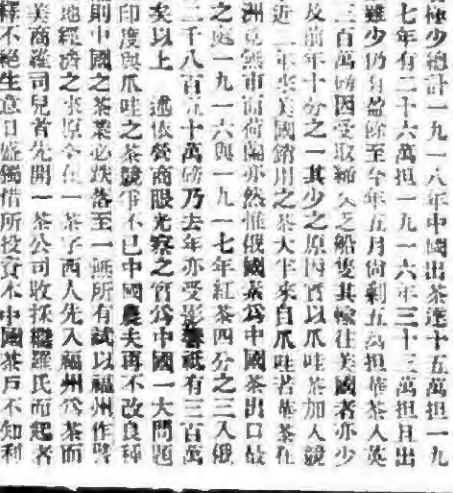 極少總計一九一八年中國出茶達十五萬担一九
七年有二十六萬担一九一六年三十三萬担且出
雖少仍有盈餘至今年五月尙剩五萬担華茶入英
三百萬磅因受取締欠乏船隻其輸往美國者亦少
及前年十分之一其少之原因實以爪哇茶加入競
近二年來美國銷用之茶大半來自爪哇若華茶在
洲竟無市面荷蘭亦然惟俄國素爲中國茶出口故
之處一九一六與一九一七年紅茶四分之三入俄
二千八百五十萬磅乃去年亦受影響祇有三百萬
矣以上述依營商眼光察之實爲中國一大問題
印度與爪哇之茶競爭不已中國農夫再不改良種
則中國之茶業必跌落至一無所有試以福州作譬
地經濟之來原全在一茶字西人先入福州爲茶而
美商羅司兒者先開一茶公司收採繼羅氏而起者
繹不絕生意日盛獨惜所投資本中國茶戶不知利